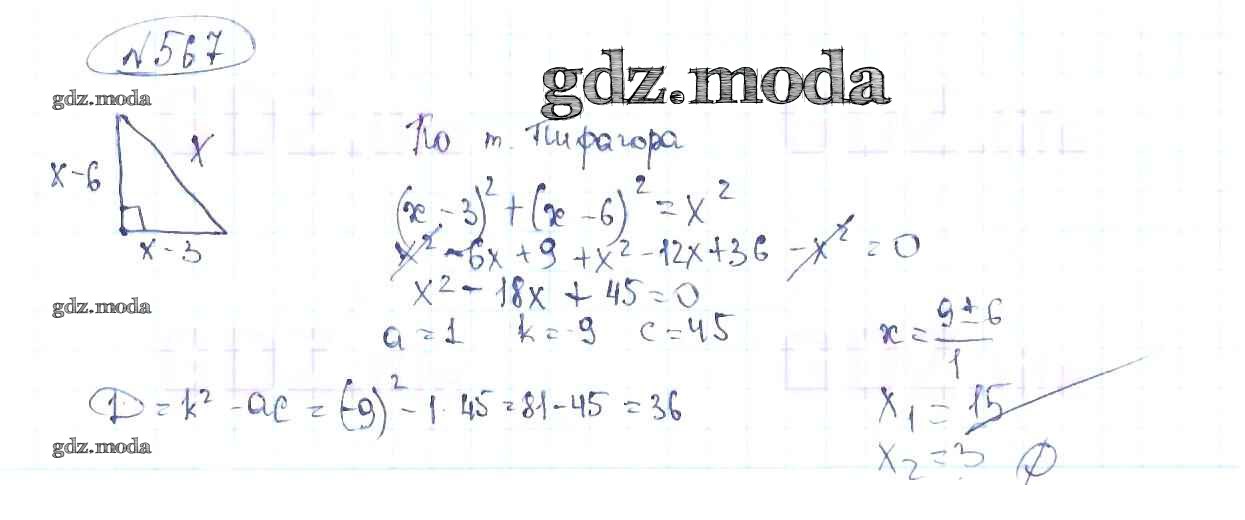 №567
gdz.moda
gdz.moda
x
x-6
x-3
По т. Пифагора
(x-3)² + (x-6)² = x²
x² - 6x + 9 + x² - 12x + 36 - x² = 0
x² - 18x + 45 = 0
a = 1 k = -9 c = 45
gdz.moda
D = k² - ac = (-9)² - 1·45 = 81 - 45 = 36
x = (9 ± 6)/1
x₁ = 15
x₂ = 3 ∅
gdz.moda